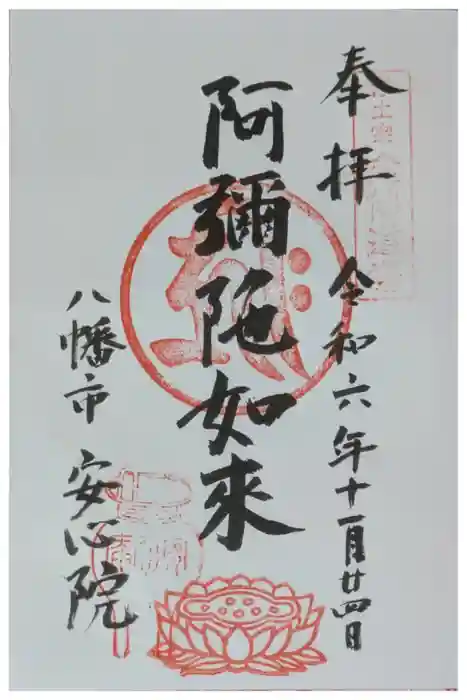 奉拝
令和六年十一月廿四日
阿彌陀如來
八幡市 安心院